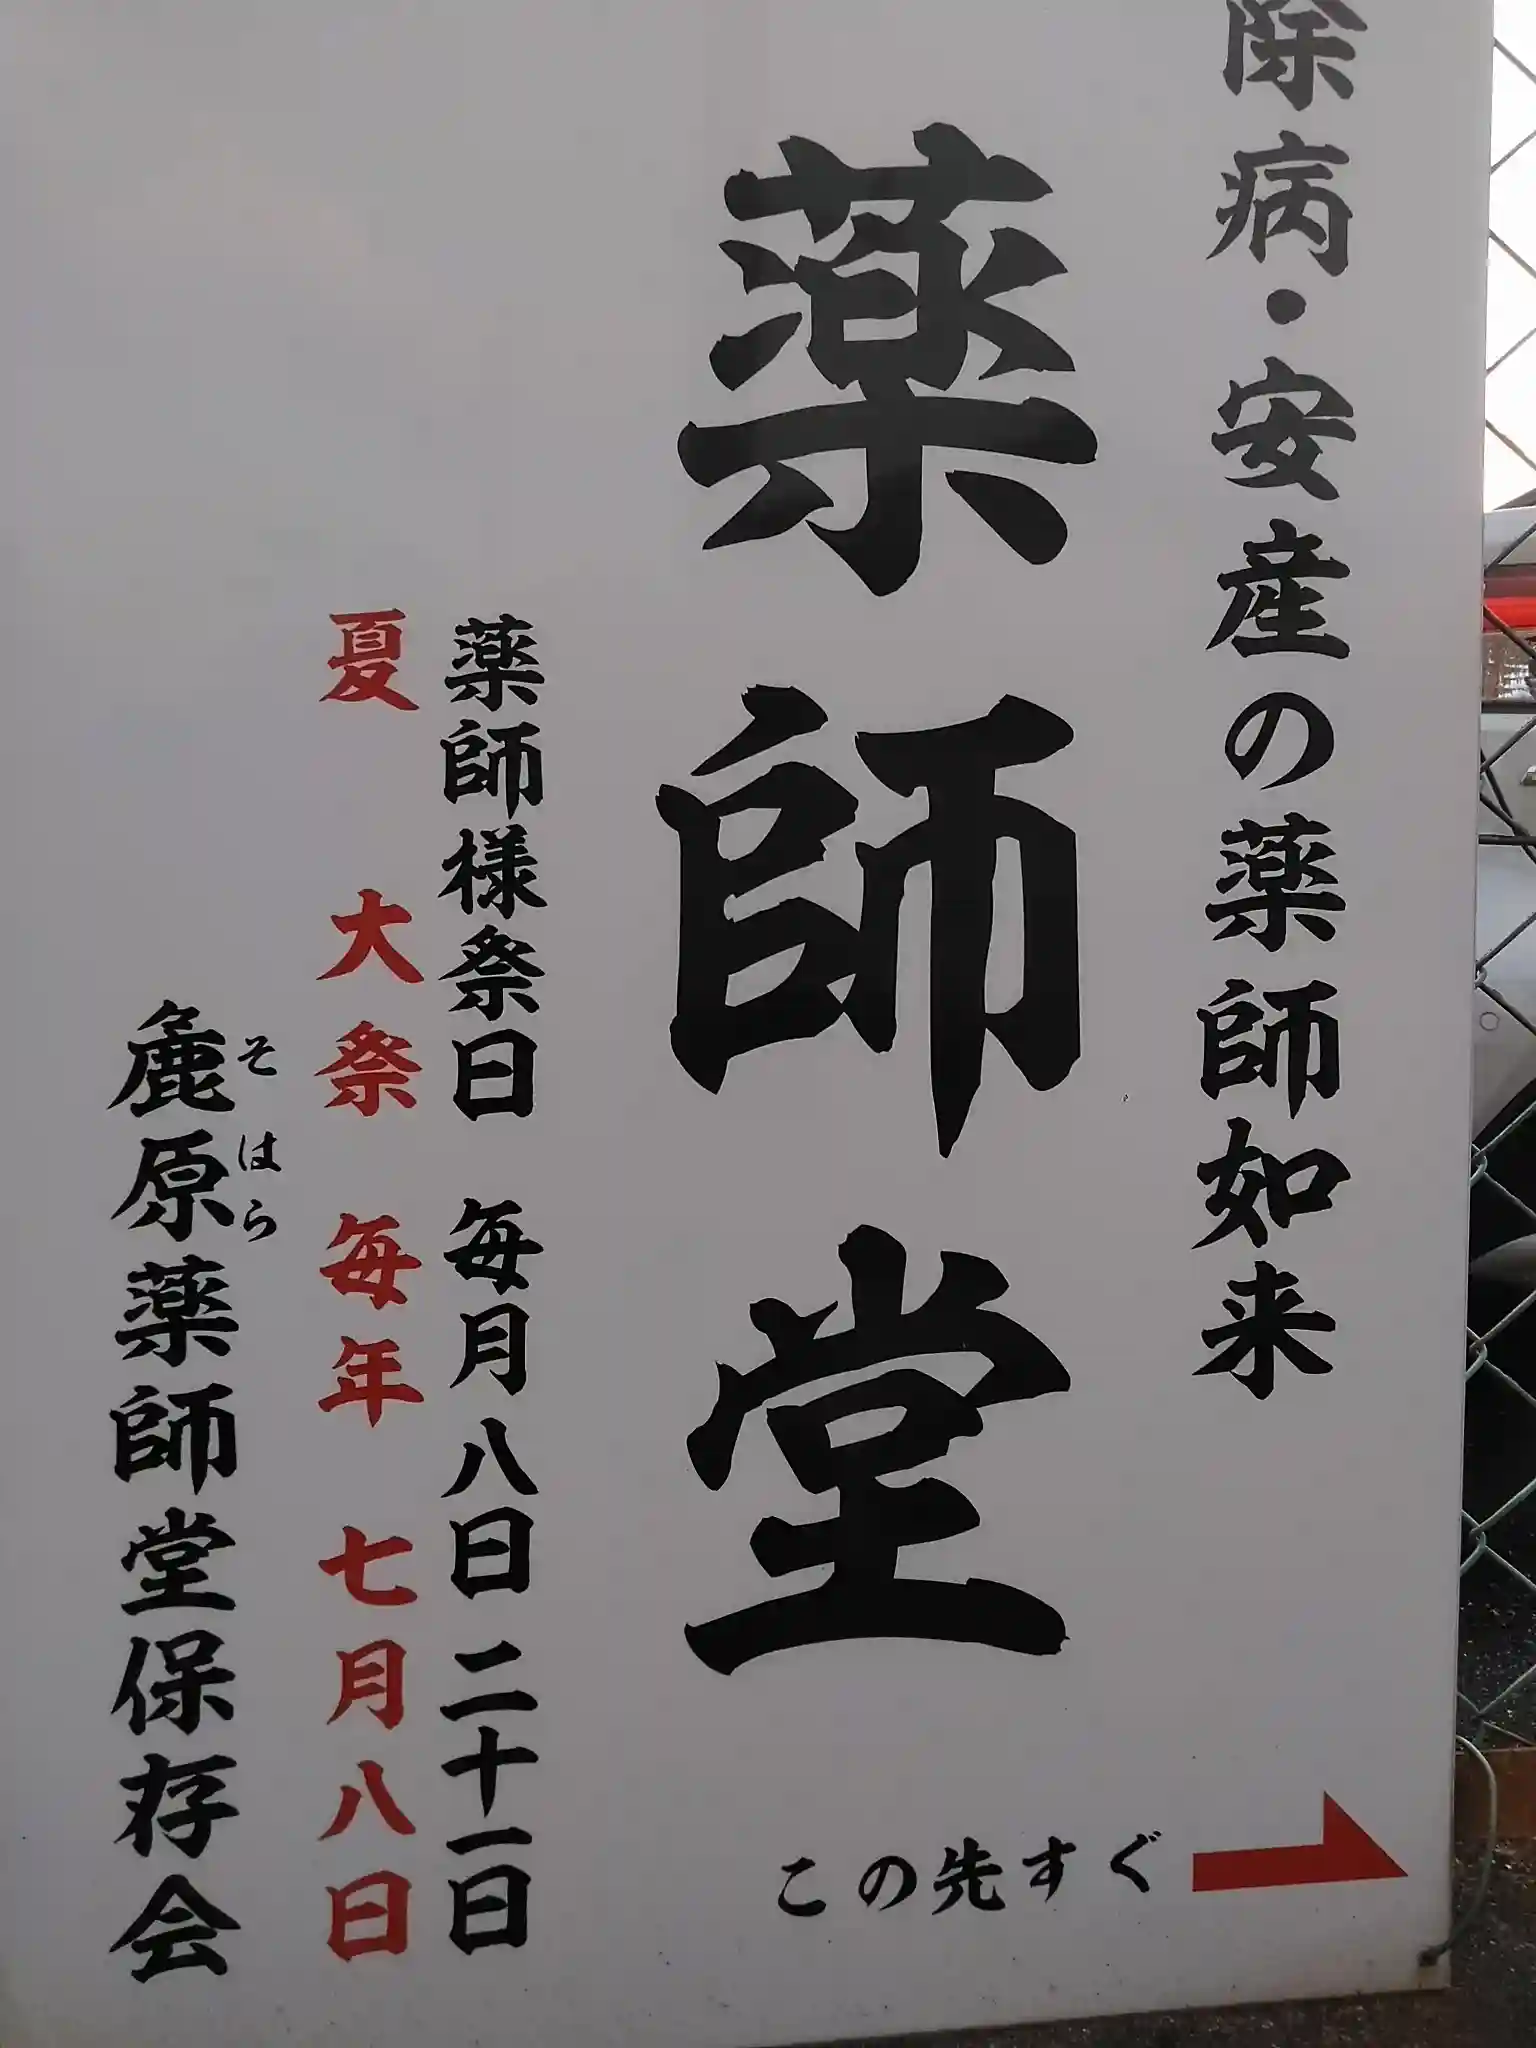 除病・安産の薬師如来
薬師堂
薬師様祭日 毎月八日 二十一日
夏 大祭 毎年 七月八日
そはら
麁原薬師堂保存会
この先すぐ